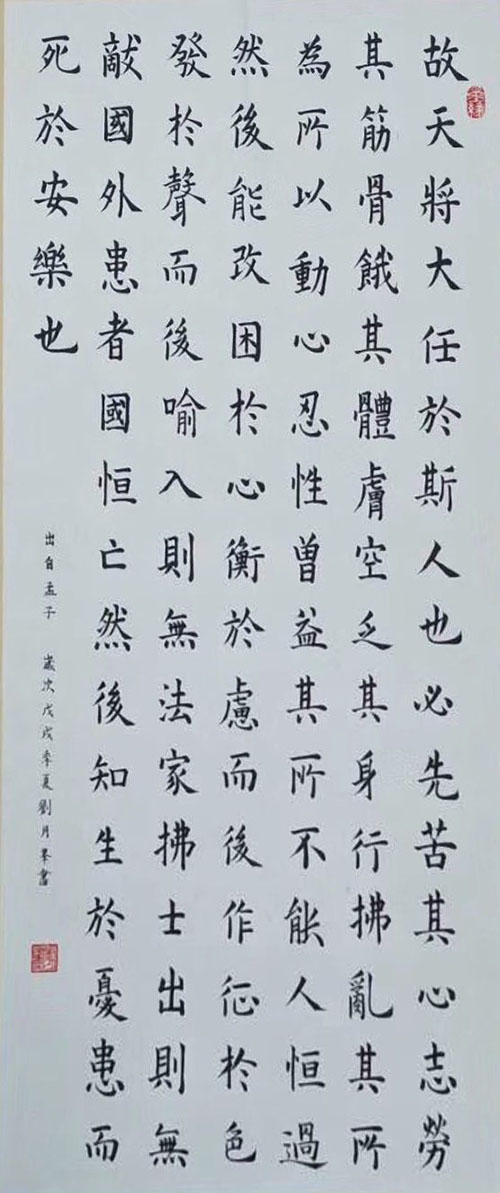 故天將大任於斯人也必先苦其心志勞
其筋骨餓其體膚空乏其身行拂亂其所
為所以動心忍性曾益其所不能人恒過
然後能改困於心衡於慮而後作征於色
發於聲而後喻入則無法家拂士出則無
敵國外患者國恒亡然後知生於憂患而
死於安樂也
出自孟子 歲次戊戌季夏劉月峯書